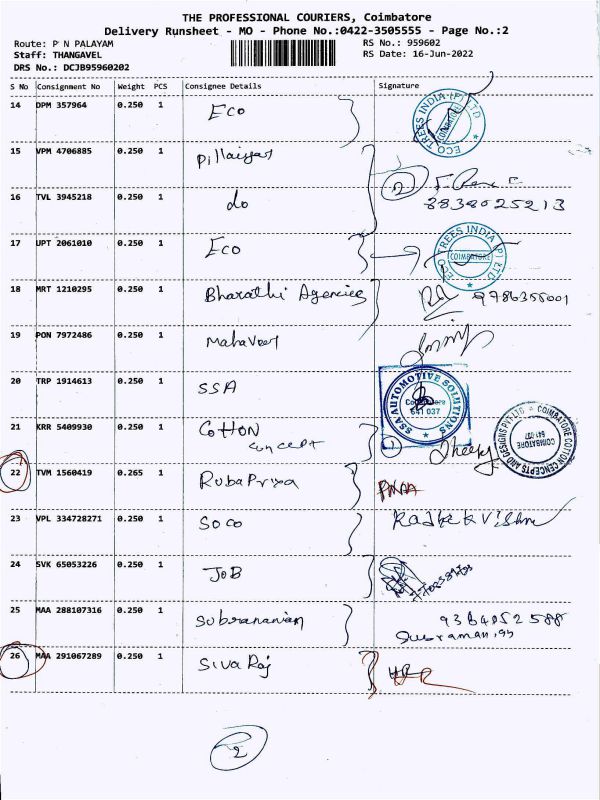 THE PROFESSIONAL COURIERS, Coimbatore
Delivery Runsheet - MO - Phone No.:0422-3505555 - Page No.:2
Route: P N PALAYAM
RS No.: 959602
Staff: THANGAVEL
RS Date: 16-Jun-2022
DRS No.: DCJB95960202
S No Consignment No Weight PCS Consignee Details Signature
14 DPM 357964 0.250 1 Eco
ECO TREES INDIA (P) LTD COIMBATORE
15 VPM 4706885 0.250 1 Pillaiyar
16 TVL 3945218 0.250 1 do 2
8838025213
17 UPT 2061010 0.250 1 Eco
ECO TREES INDIA (P) LTD COIMBATORE
18 MRT 1210295 0.250 1 Bharathi Agencies 9786355001
19 PON 7972486 0.250 1 Mahaveer
20 TRP 1914613 0.250 1 SSA
SSA AUTOMOTIVE SOLUTIONS Coimbatore 641 037
21 KRR 5409930 0.250 1 Cotton
concept
COIMBATORE COTTON CENCEPTS AND DESIGNS PVT LTD COIMBATORE 641-037
22 TVM 1560419 0.265 1 RubaPriya
23 VPL 334728271 0.250 1 Soco
24 SVK 65053226 0.250 1 JOB
25 MAA 288107316 0.250 1 Subramanian 9364052588
26 MAA 291067289 0.250 1 Siva Raj
2